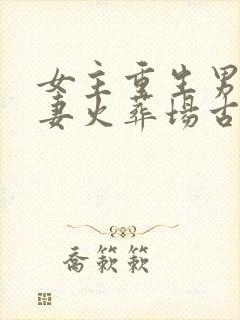 女主重生男
妻火葬场古
乔簌簌